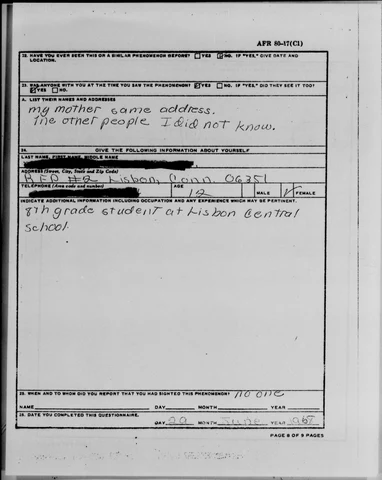 AFR 80-17(C1)
22. HAVE YOU EVER SEEN THIS OR A SIMILAR PHENOMENON BEFORE? YES NO. IF "YES," GIVE DATE AND
LOCATION.
23. WAS ANYONE WITH YOU AT THE TIME YOU SAW THE PHENOMENON? YES NO. IF "YES," DID THEY SEE IT TOO?
YES NO.
A. LIST THEIR NAMES AND ADDRESSES
my mother same address.
The other people I did not know.
24. GIVE THE FOLLOWING INFORMATION ABOUT YOURSELF
LAST NAME, FIRST NAME, MIDDLE NAME
ADDRESS (Street, City, State and Zip Code)
RFD #2 Lisbon, Conn. 06351
TELEPHONE (Area code and number) AGE 12 MALE FEMALE
INDICATE ADDITIONAL INFORMATION INCLUDING OCCUPATION AND ANY EXPERIENCE WHICH MAY BE PERTINENT.
8th grade student at Lisbon Central
school.
25. WHEN AND TO WHOM DID YOU REPORT THAT YOU HAD SIGHTED THIS PHENOMENON? no one
NAME DAY MONTH YEAR
26. DATE YOU COMPLETED THIS QUESTIONNAIRE.
DAY 20 MONTH June YEAR
PAGE 8 OF 9 PAGES